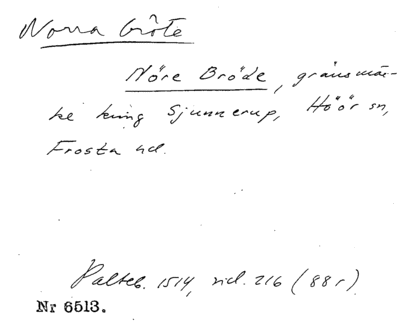 Norra Gröte
Nöre Bröde, gränsmär-
ke kring Sjunnerup, Höör sn,
Frosta hd.
Palteb. 1514, sid. 216 (88r)
Nr 6513.